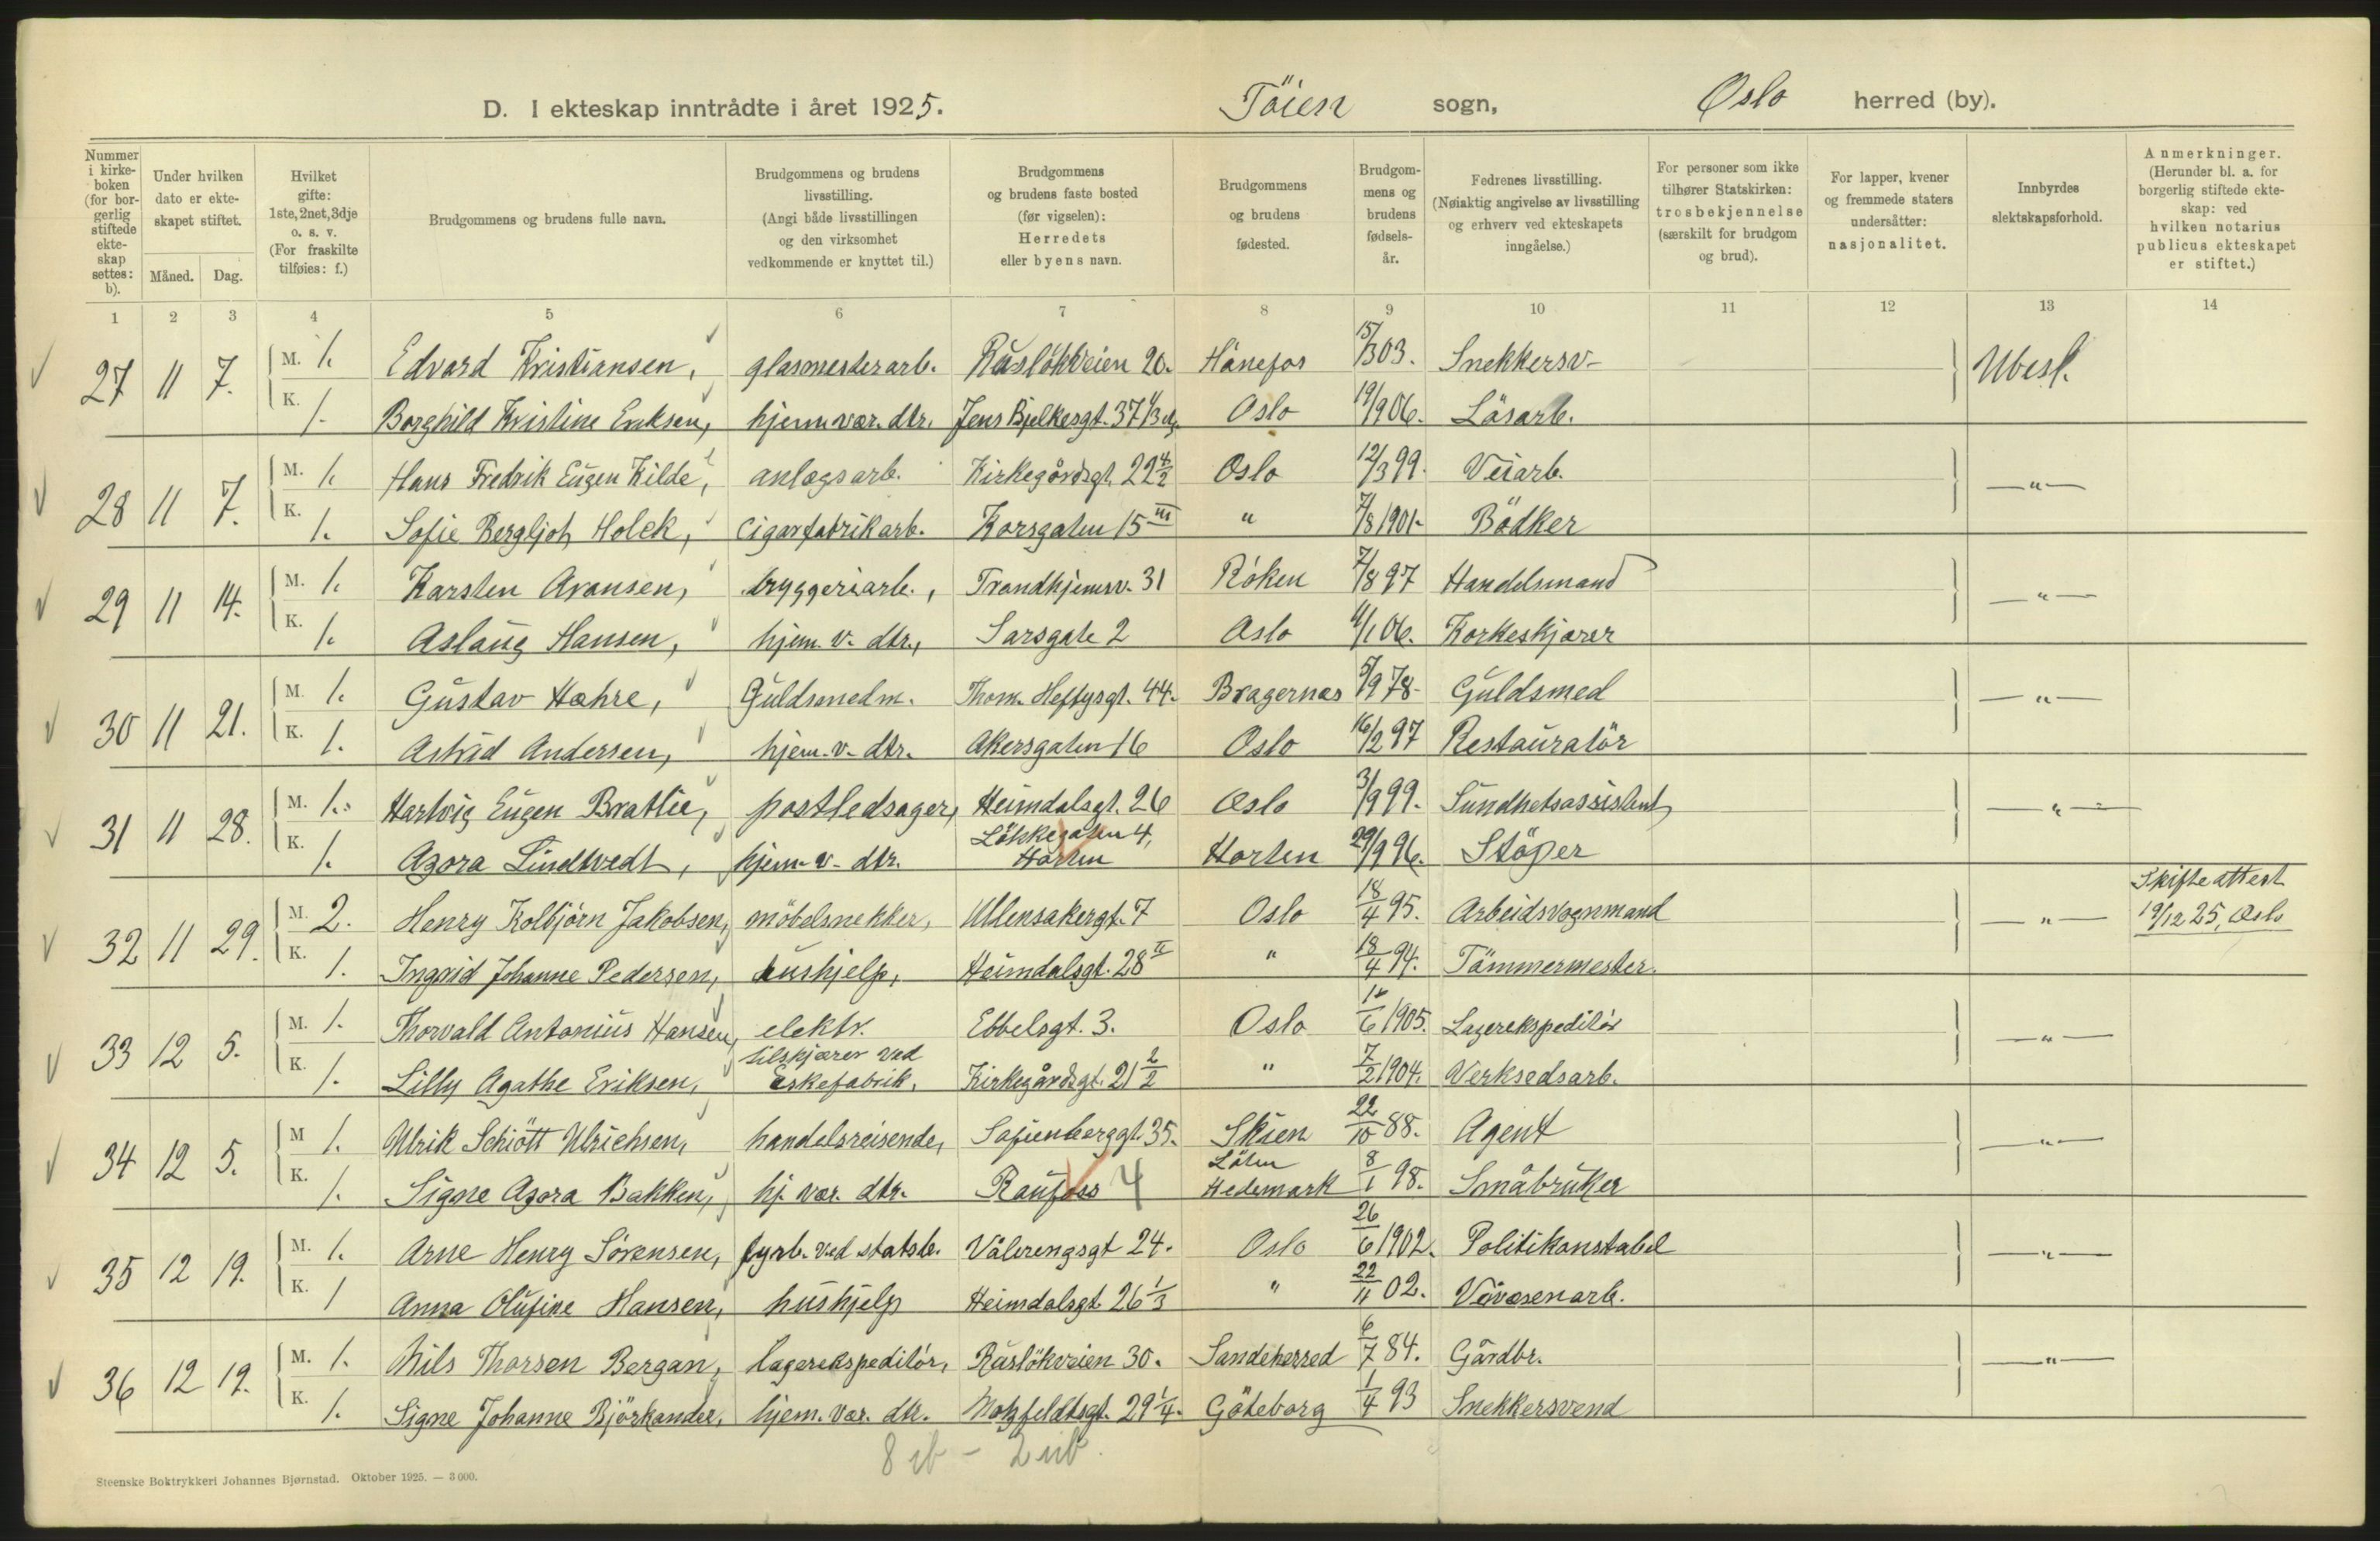 D. I ekteskap inntrådte i året 1925. Töien sogn, Oslo herred (by).
Nummer i kirke-boken (for bor-gerlig stiftede ekte-skap settes: b).
Under hvilken dato er ekte-skapet stiftet.
Måned. Dag.
Hvilket gifte: 1ste, 2net, 3dje o. s. v. (For fraskilte tilføies: f.)
Brudgommens og brudens fulle navn.
Brudgommens og brudens livsstilling. (Angi både livsstillingen og den virksomhet vedkommende er knyttet til.)
Brudgommens og brudens faste bosted (før vigselen): Herredets eller byens navn.
Brudgommens og brudens fødested.
Brudgom-mens og brudens fødsels-år.
Fedrenes livsstilling. (Nøiaktig angivelse av livsstilling og erhverv ved ekteskapets inngåelse.)
For personer som ikke tilhører Statskirken: trosbekjennelse (særskilt for brudgom og brud).
For lapper, kvener og fremmede staters undersåtter: nasjonalitet.
Innbyrdes slektskapsforhold.
Anmerkninger. (Herunder bl. a. for borgerlig stiftede ekte-skap: ved hvilken notarius publicus ekteskapet er stiftet.)
1 2 3 4 5 6 7 8 9 10 11 12 13 14
27 11 7. M. 1. Edvard Kristiansen, glasmesterarb. Rusløkveien 20. Hönefos 15/3 03. Snekkersv- Ubesl.
K. 1. Borghild Kristine Eriksen, hjemmvær. dtr. Jens Bjelkesgt. 37 1/3 19/9 06. Oslo Løsarb.
28 11 7. M. 1. Hans Fredrik Eugen Kilde, anlægsarb. Kirkegårdsgt. 22 4/2 Oslo 12/3 99. Veiarb. —"—
K. 1. Sofie Bergljot Holck, Cigarfabrikarb. Korsgaten 15 III " 7/8 1901. Bødker
29 11 14. M. 1. Karsten Aronsen, bryggeriarb., Trondhjemsv. 31 Röken 7/8 97 Handelsmand —"—
K. 1. Aslaug Hansen, hjem. v. dtr., Sarsgate 2 Oslo 4/1 06. Korkeskjærer
30 11 21. M. 1. Gustav Hæhre, Guldsmedm. Thom. Heftysgt. 44. Bragernes 5/9 78. Guldsmed —"—
K. 1. Astrid Andersen, hjem. v. dtr. Akersgaten 16 Oslo 16/2 97 Restauratör
31 11 28. M. 1. Hartvig Eugen Brattlie, postledsager, Heimdalsgt. 26 Oslo 3/9 99. Sundhetsassistent —"—
K. 1. Agora Lindtvedt, hjem. v. dtr. Lökkegaten 4, Horten Horten 29/9 96. Støper
32 11 29. M. 2. Henry Kolbjörn Jakobsen, möbelsnekker, Ullensakergt. 7 Oslo 18/4 95. Arbeidsvognmand —"— Skifteattest 19/12 25, Oslo
K. 1. Ingrid Johanne Pedersen, hushjelp, Heimdalsgt. 28 II " 18/4 94. Tömmermester.
33 12 5. M. 1. Thorvald Antonius Hansen, elektr. Ebbelsgt. 3. Oslo 12/6 1905. Lagerekspeditör —"—
K. 1. Lilly Agathe Eriksen, tilskjærer ved Eskefabrik. Kirkegårdsgt. 21 2/2 " 7/2 1904. Verkstedsarb.
34 12 5. M 1. Ulrik Schiött Ulrichsen, handelsreisende, Sofienberggt. 35. Skien 22/10 88. Agent —"—
K. 1. Signe Agora Bakken, hj. vær. dtr. Raufoss 4 Löten Hedemark 8/1 98. Småbruker
35 12 19. M. 1. Arne Henry Sörensen, fyrb. ved statsb. Vålerengsgt 24. Oslo 26/6 1902. Politikonstabel —"—
K. 1 Anna Olufine Hansen, hushjelp Heimdalsgt. 26 1/3 " 22/11 02. Veivæsenarb.
36 12 19. M. 1. Nils Thorsen Bergan, lagerekspeditör, Rusløkveien 30. Sandeherred 6/7 84. Gårdbr. —"—
K. 1. Signe Johanne Björkander, hjem. vær. dtr. Motzfeldtsgt. 29 1/4. Göteborg 1/4 93 Snekkersvend
8 ib - 2 uib.
Steenske Boktrykkeri Johannes Bjørnstad. Oktober 1925. — 3 000.